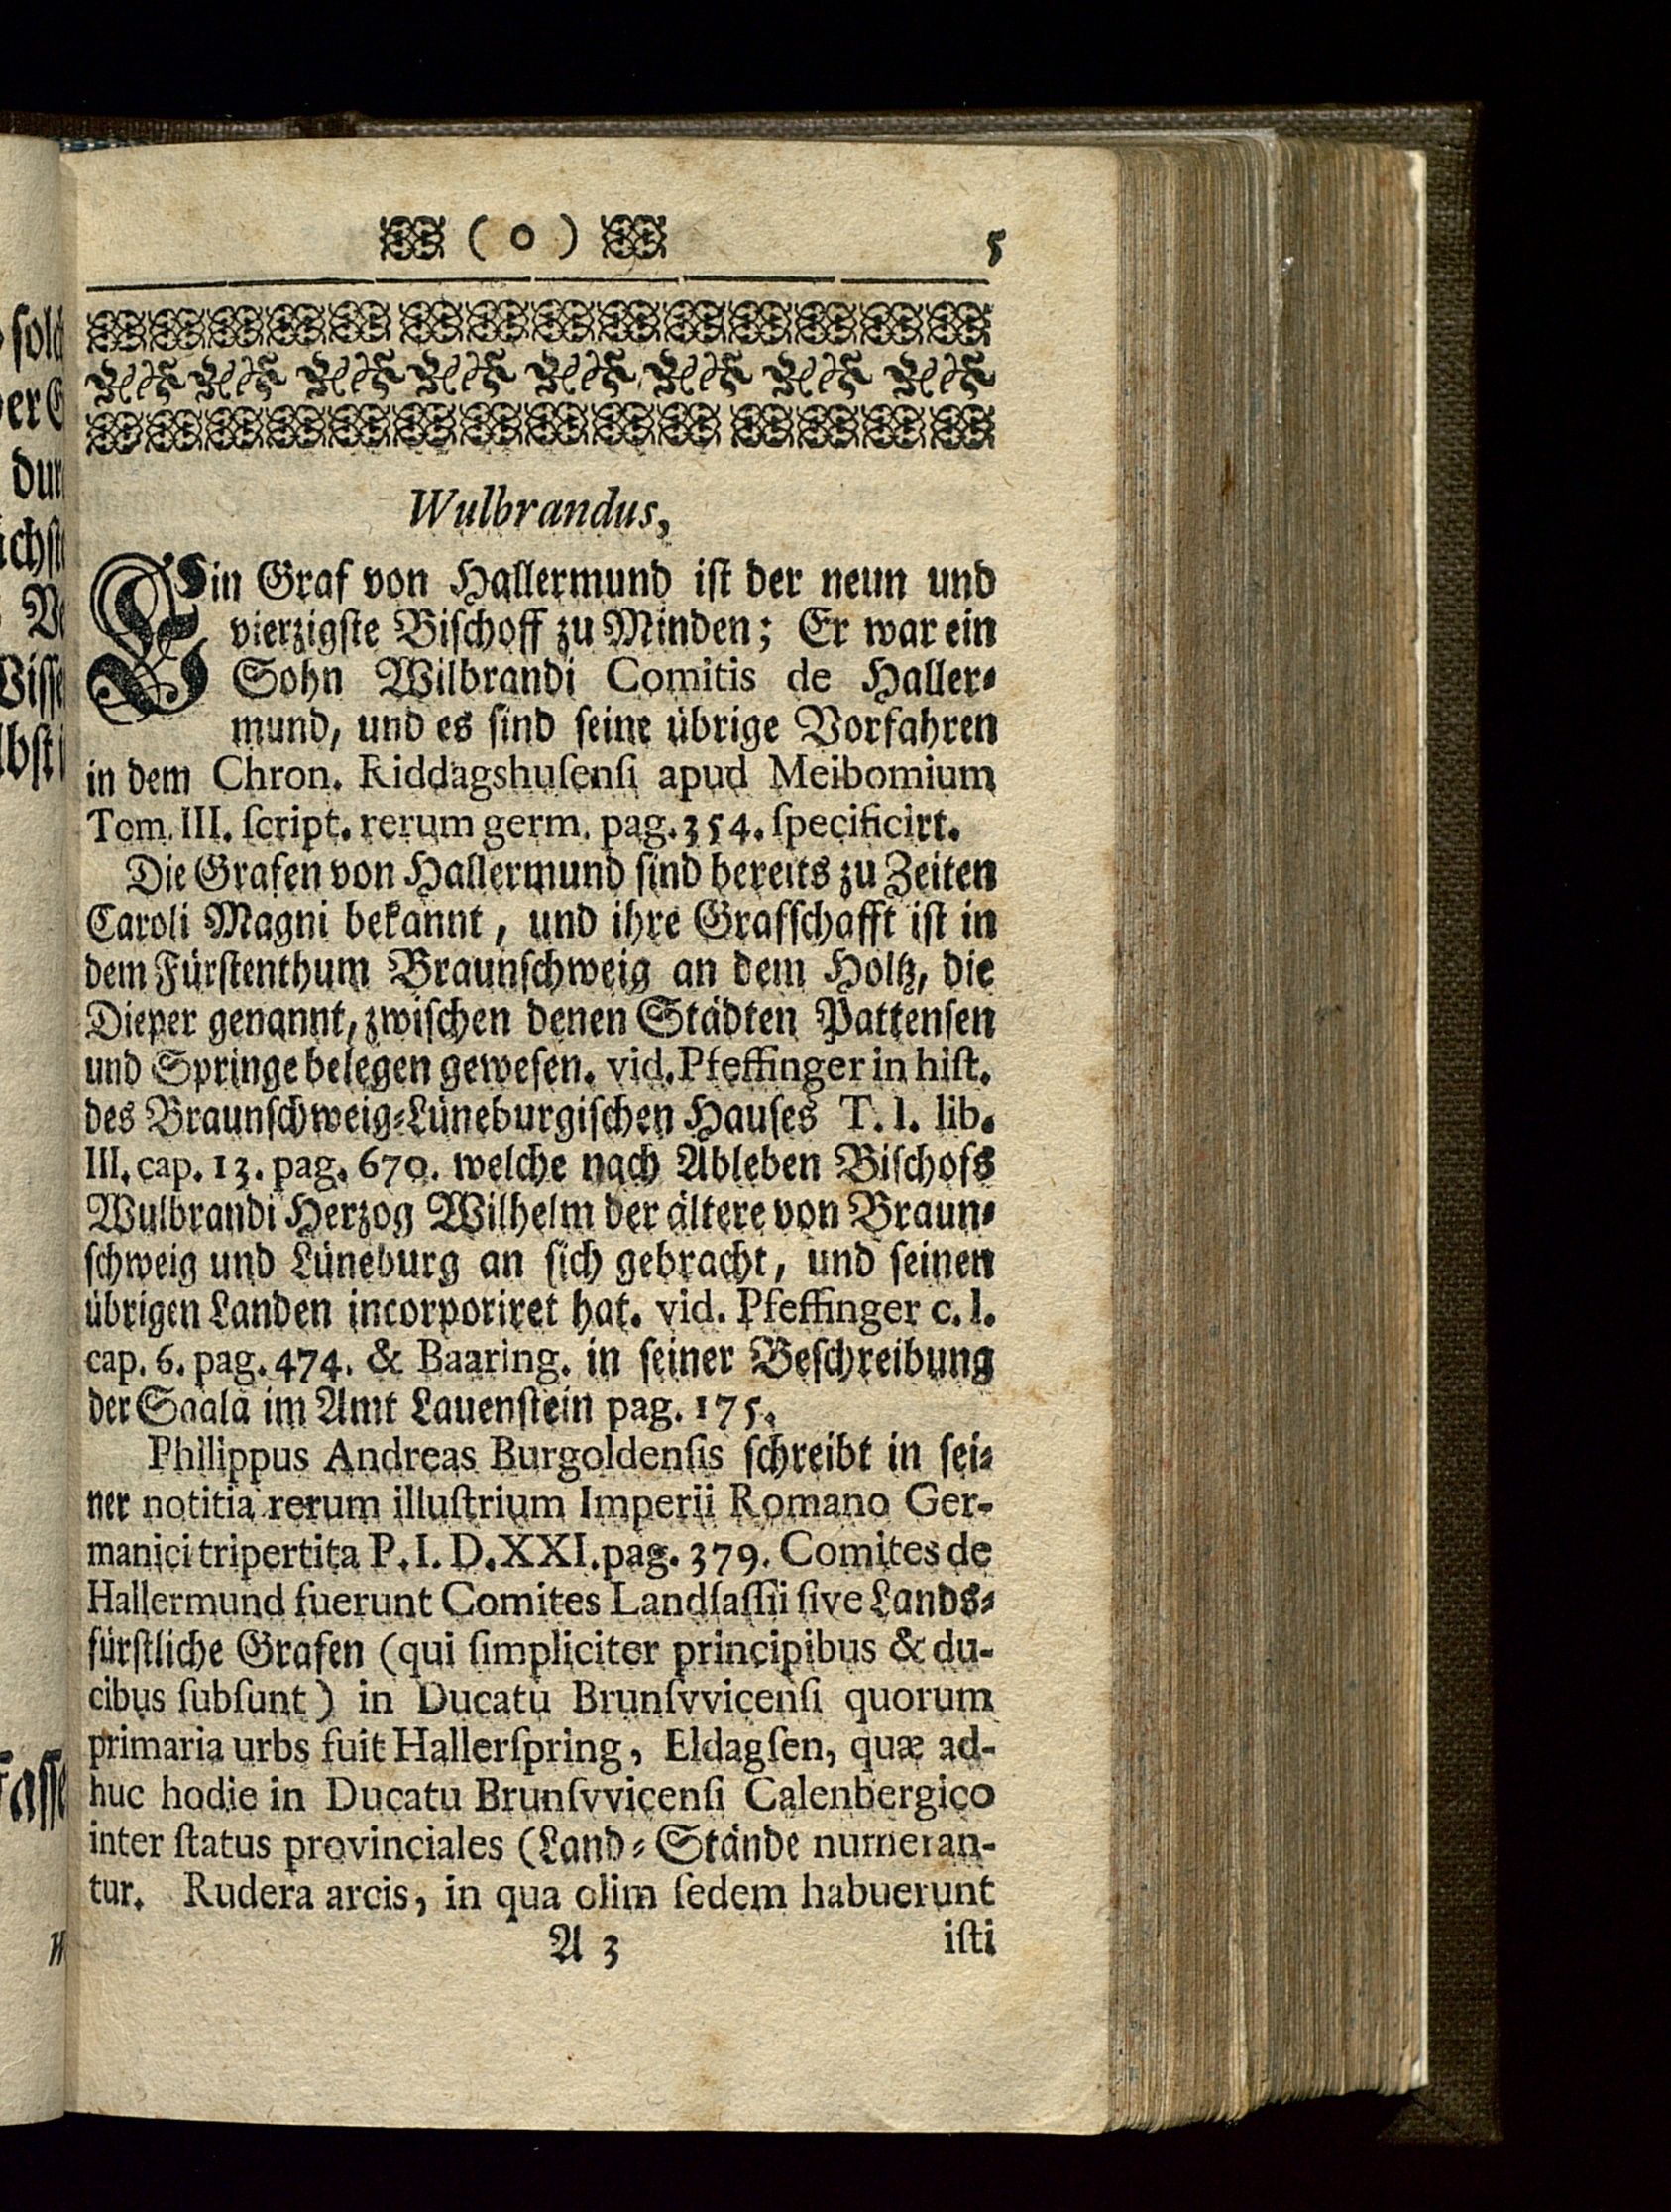 ( o ) 5
Wulbrandus,
Ein Graf von Hallermund ist der neun und
vierzigste Bischoff zu Minden; Er war ein
Sohn Wilbrandi Comitis de Haller-
mund, und es sind seine übrige Vorfahren
in dem Chron. Riddagshuſenſi apud Meibomium
Tom. III. ſcript. rerum germ. pag. 354. ſpecificirt.
Die Grafen von Hallermund ſind bereits zu Zeiten
Caroli Magni bekannt, und ihre Grafſchafft iſt in
dem Fürſtenthum Braunſchweig an dem Holtz, die
Dieper genannt, zwiſchen denen Städten Pattenſen
und Springe belegen geweſen. vid. Pfeffinger in hiſt.
des Braunſchweig-Lüneburgiſchen Hauſes T. I. lib.
III. cap. 13. pag. 670. welche nach Ableben Biſchofs
Wulbrandi Herzog Wilhelm der ältere von Braun-
ſchweig und Lüneburg an ſich gebracht, und ſeinen
übrigen Landen incorporiret hat. vid. Pfeffinger c. l.
cap. 6. pag. 474. & Baaring. in ſeiner Beſchreibung
der Saala im Amt Lauenſtein pag. 175.
Philippus Andreas Burgoldenſis ſchreibt in ſei-
ner notitia rerum illuſtrium Imperii Romano Ger-
manici tripertita P. I. D. XXI. pag. 379. Comites de
Hallermund fuerunt Comites Landſaſſii ſive Lands-
fürſtliche Grafen (qui ſimpliciter principibus & du-
cibus ſubſunt) in Ducatu Brunſvvicenſi quorum
primaria urbs fuit Hallerſpring, Eldagſen, quæ ad-
huc hodie in Ducatu Brunſvvicenſi Calenbergico
inter ſtatus provinciales (Land-Stände numeran-
tur. Rudera arcis, in qua olim ſedem habuerunt
A 3 iſti